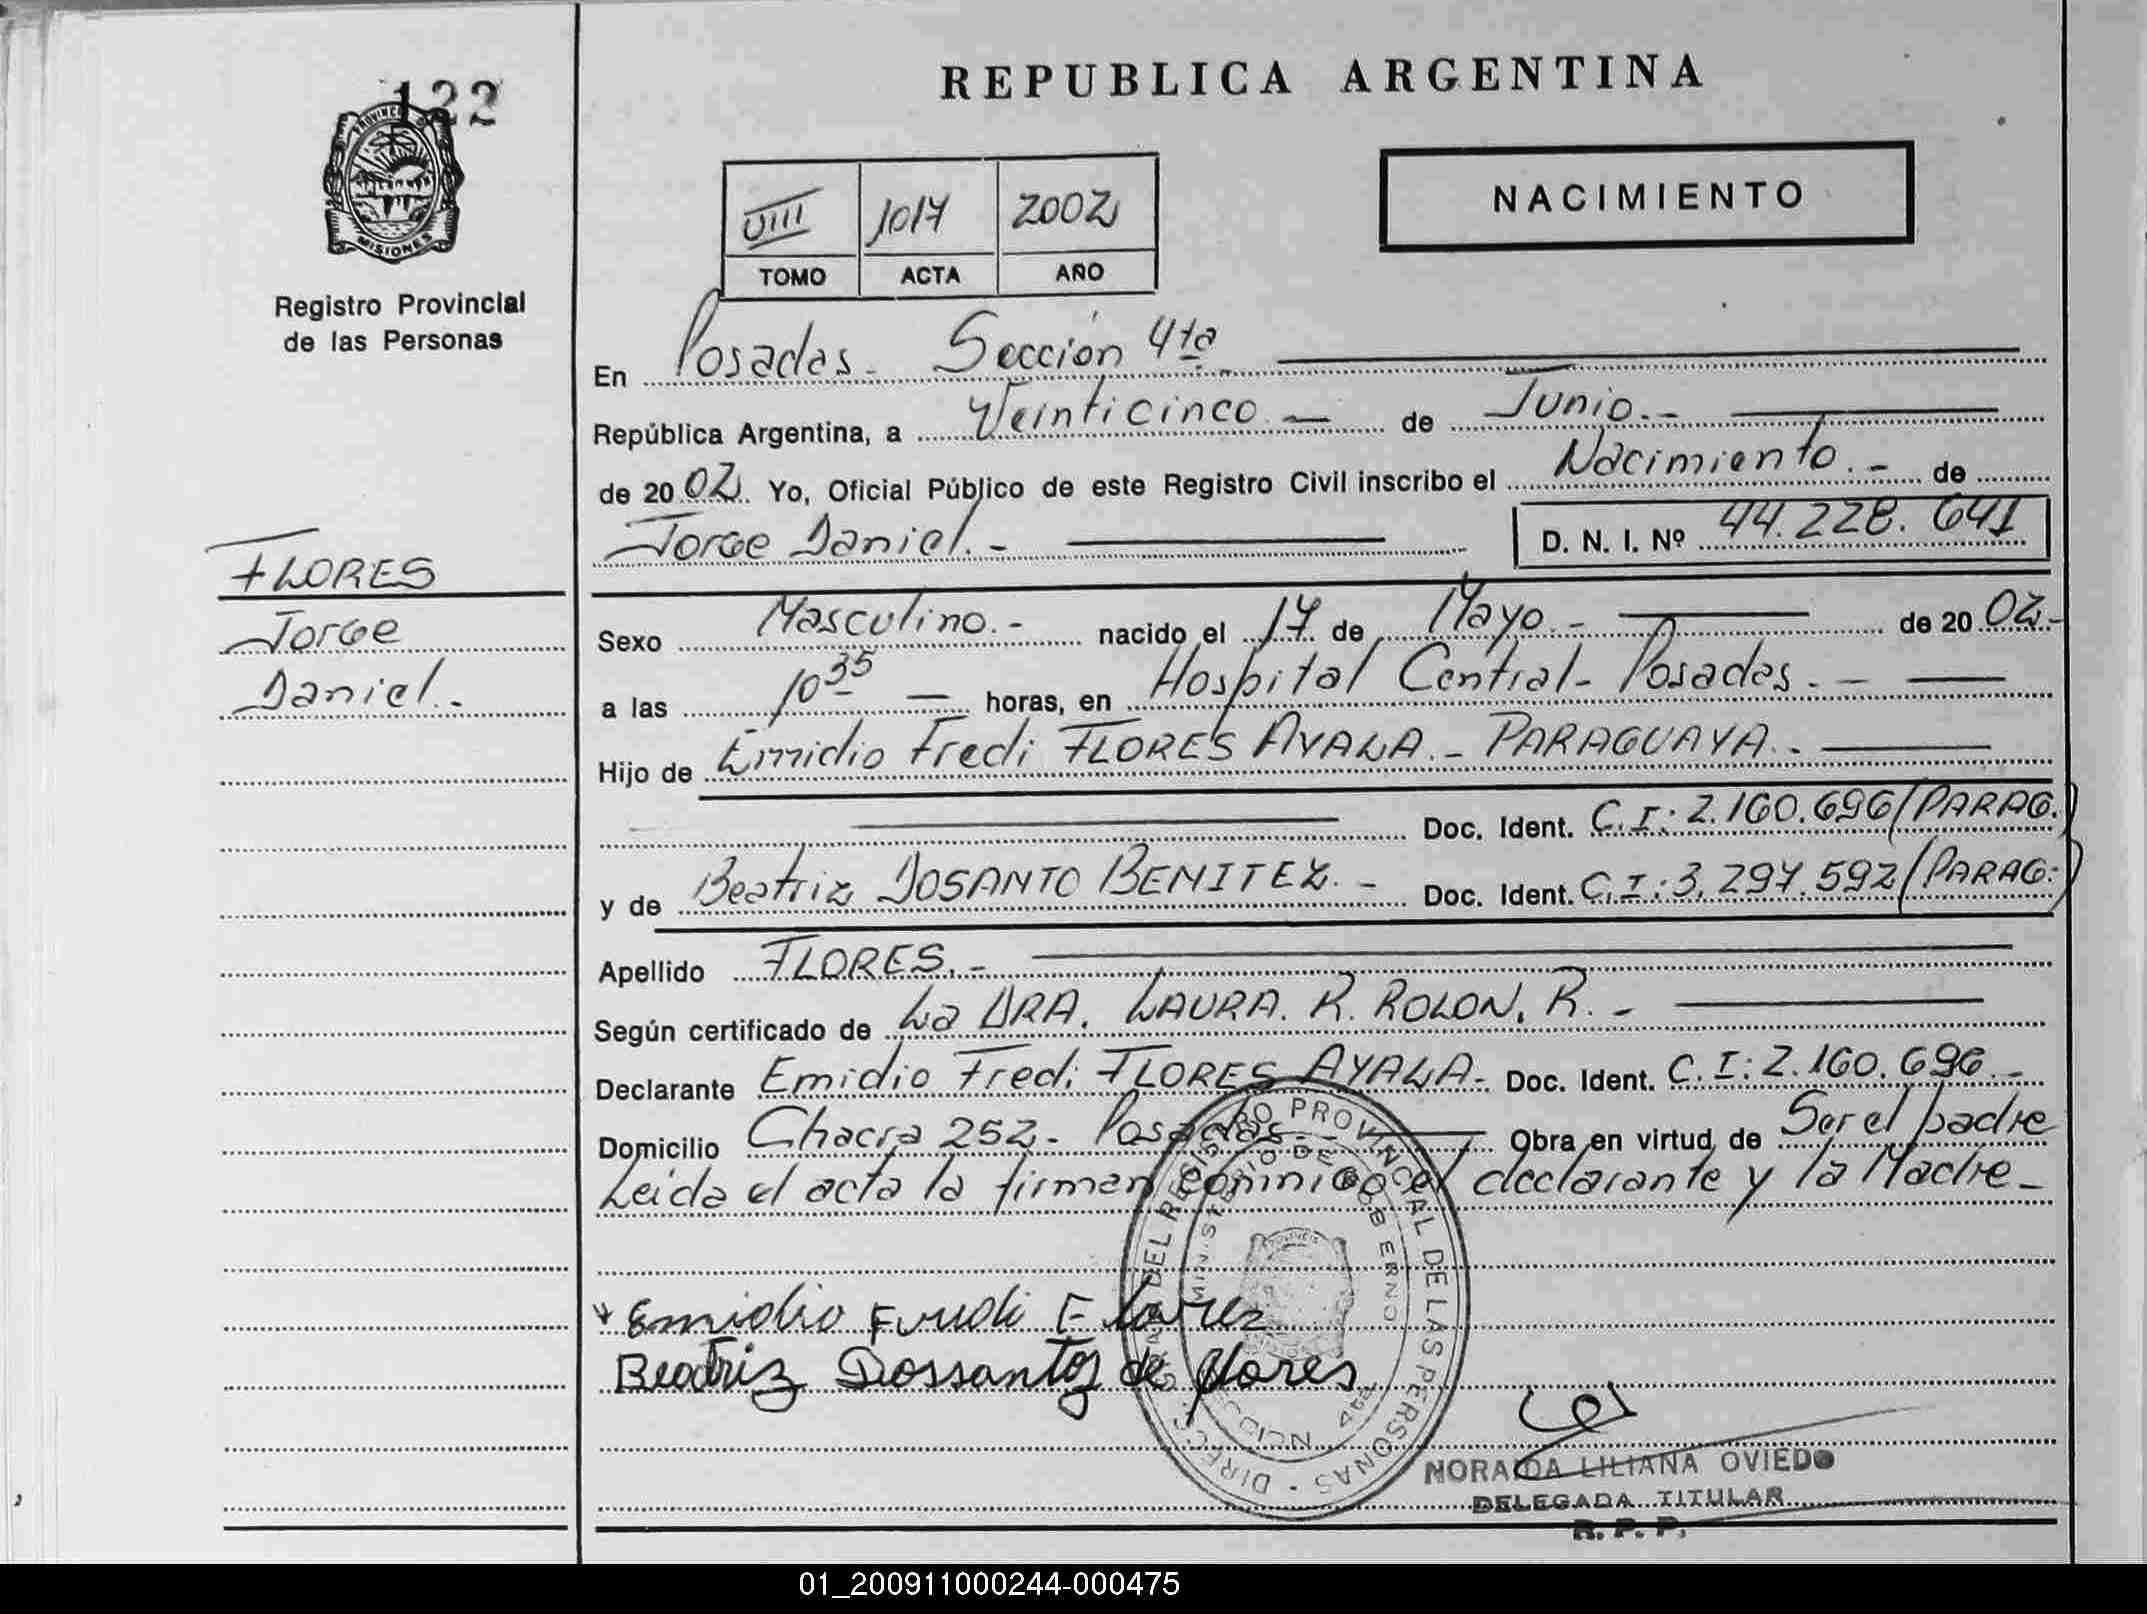 122
PROVINCIA
MISIONES
Registro Provincial
de las Personas
FLORES
Jorge
Daniel.-
REPUBLICA ARGENTINA
NACIMIENTO
VIII 1017 2002
TOMO ACTA AÑO
En Posadas.- Sección 4ta
República Argentina, a Veinticinco.- de Junio.-
de 2002. Yo, Oficial Público de este Registro Civil inscribo el Nacimiento.- de
Jorge Daniel.- D. N. I. Nº 44.228.641
Sexo Masculino.- nacido el 17 de Mayo.- de 2002.-
a las 10 35 horas, en Hospital Central- Posadas.-
Hijo de Emidio Fredi FLORES AYALA.- PARAGUAYA.-
Doc. Ident. C.I.: 2.160.696 (PARAG.)
y de Beatriz DOSANTO BENITEZ.- Doc. Ident. C.I.: 3.297.592 (PARAG.)
Apellido FLORES.-
Según certificado de La DRA. LAURA. R. ROLON. R.-
Declarante Emidio Fredi FLORES AYALA- Doc. Ident. C.I: 2.160.696.-
Domicilio Chacra 252- Posadas.- Obra en virtud de Ser el padre
Leida el acta la firman conmigo el declarante y la Madre-
Emidio Fredi Flores
Beatriz Dossantos de flores
DIRECCION GRAL DEL REGISTRO PROVINCIAL DE LAS PERSONAS
MINISTERIO DE GOBIERNO
4ta
NORAIDA LILIANA OVIEDO
DELEGADA TITULAR
R. P. P.
01_200911000244-000475